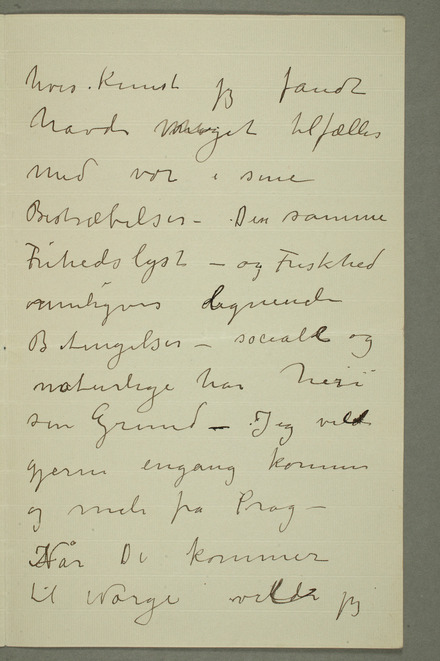 hvis Kunst jeg fandt
havde meget tilfælles
med vor i sine
Bestræbelser – Den samme
Frihedslyst – og Friskhed
rimeligvis lignende
Betingelser – sociale og
naturlige har heri
sin Grund – Jeg vilde
gjerne engang komme
og male fra Prag –
Når De kommer
til Norge vilde jeg